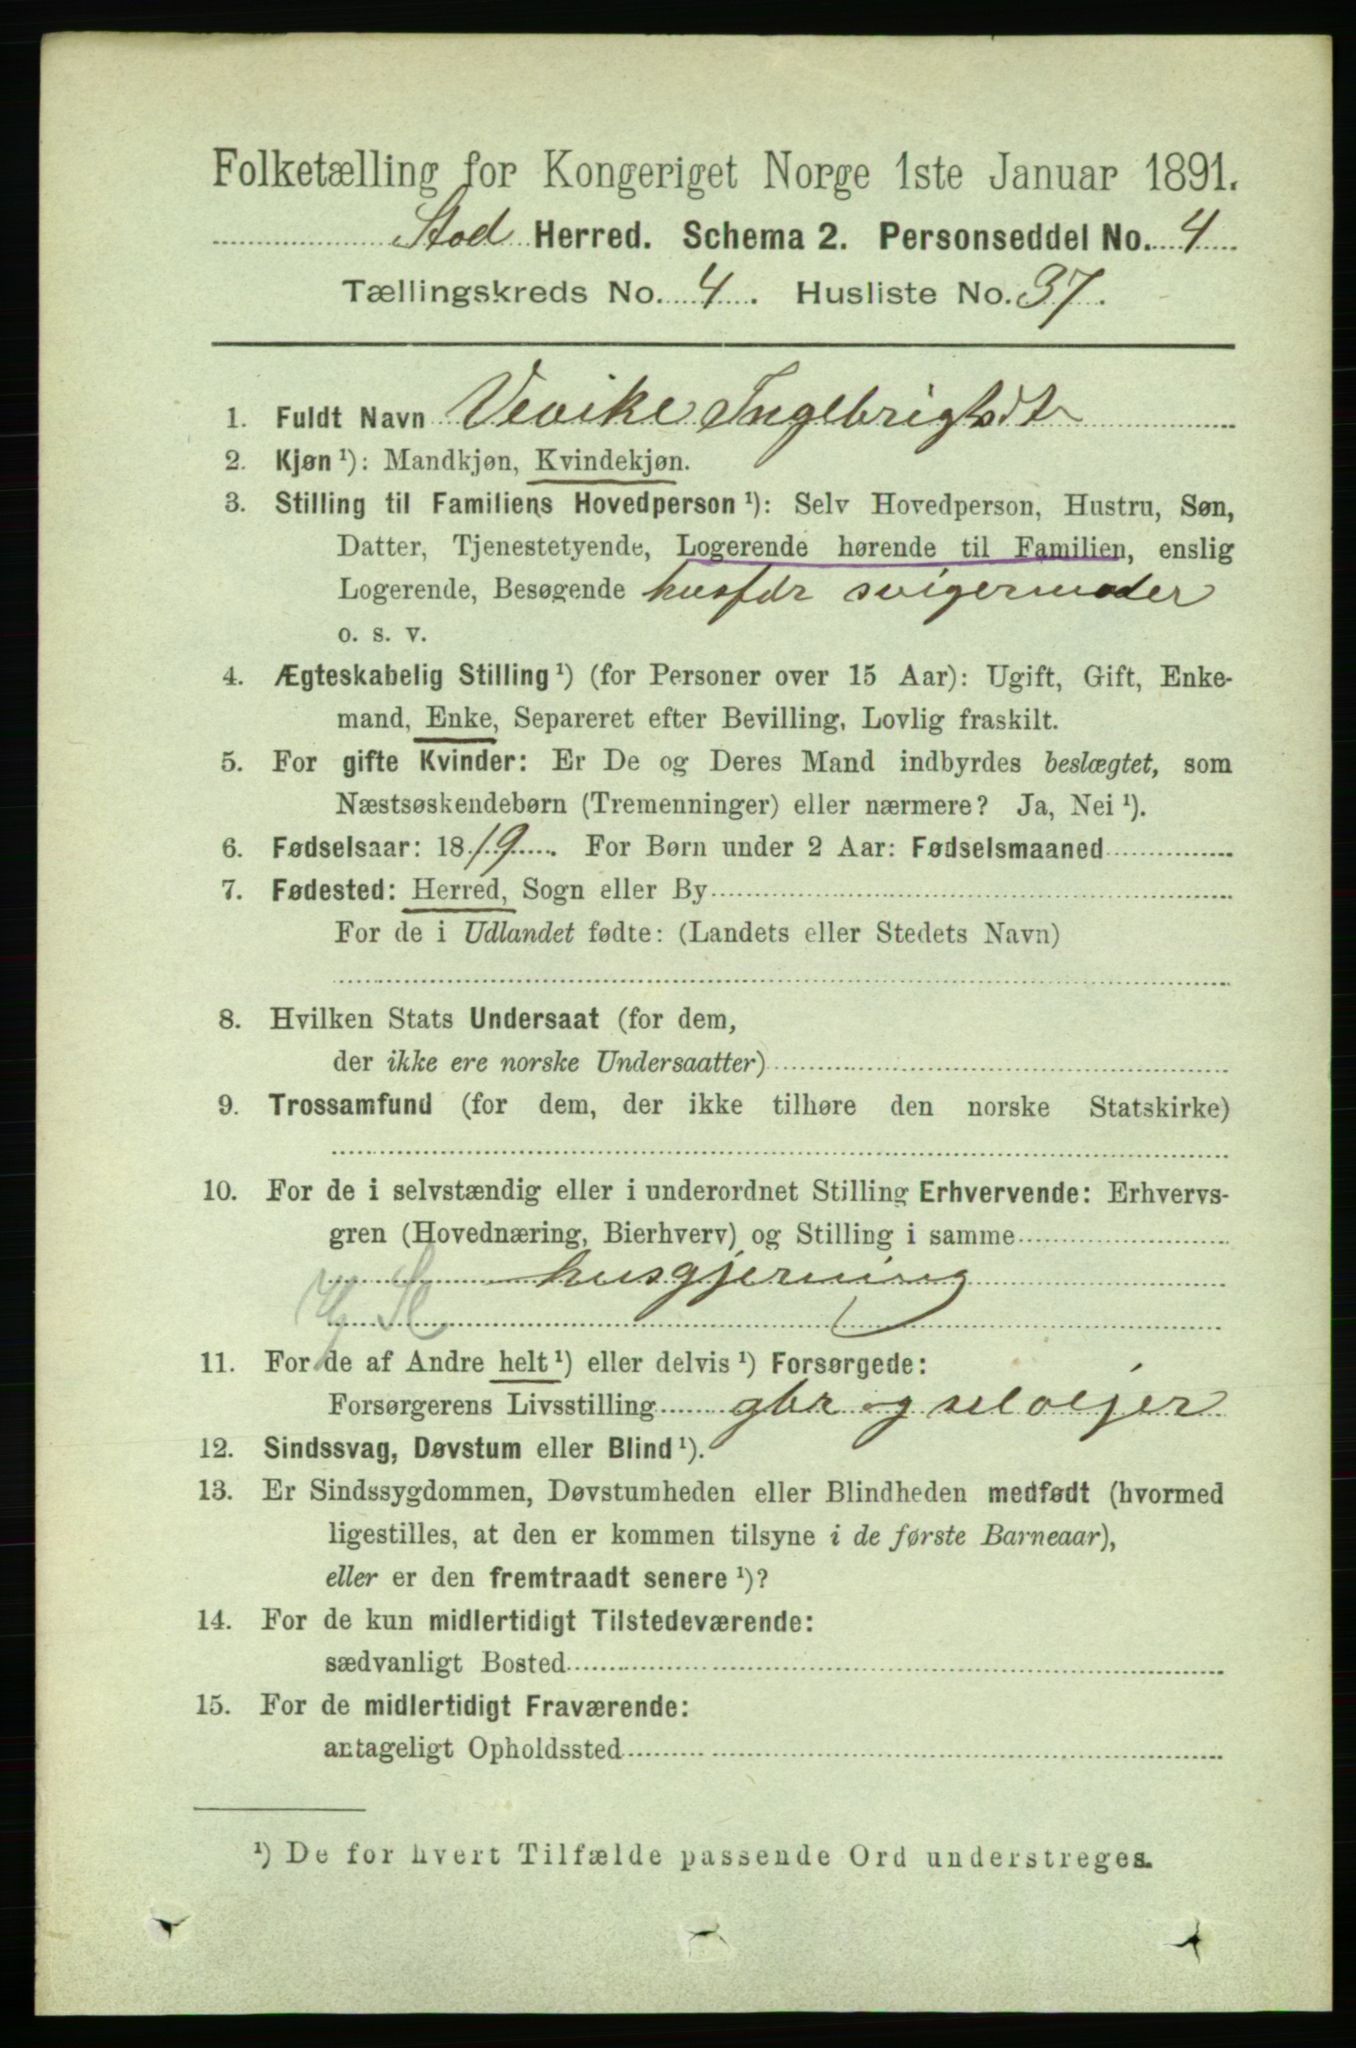 Folketælling for Kongeriget Norge 1ste Januar 1891.
Stod Herred. Schema 2. Personseddel No. 4
Tællingskreds No. 4. Husliste No. 37.
1. Fuldt Navn Vevike Ingebrigtsdtr
2. Kjøn ¹): Mandkjøn, Kvindekjøn.
3. Stilling til Familiens Hovedperson ¹): Selv Hovedperson, Hustru, Søn,
Datter, Tjenestetyende, Logerende hørende til Familien, enslig
Logerende, Besøgende husfdr svigermoder
o. s. v.
4. Ægteskabelig Stilling ¹) (for Personer over 15 Aar): Ugift, Gift, Enke-
mand, Enke, Separeret efter Bevilling, Lovlig fraskilt.
5. For gifte Kvinder: Er De og Deres Mand indbyrdes beslægtet, som
Næstsøskendebørn (Tremenninger) eller nærmere? Ja, Nei ¹).
6. Fødselsaar: 1819. For Børn under 2 Aar: Fødselsmaaned
7. Fødested: Herred, Sogn eller By
For de i Udlandet fødte: (Landets eller Stedets Navn)
8. Hvilken Stats Undersaat (for dem,
der ikke ere norske Undersaatter)
9. Trossamfund (for dem, der ikke tilhøre den norske Statskirke)
10. For de i selvstændig eller i underordnet Stilling Erhvervende: Erhvervs-
gren (Hovednæring, Bierhverv) og Stilling i samme
husgjerning
11. For de af Andre helt ¹) eller delvis ¹) Forsørgede:
Forsørgerens Livsstilling gbr og seloejer
12. Sindssvag, Døvstum eller Blind ¹).
13. Er Sindssygdommen, Døvstumheden eller Blindheden medfødt (hvormed
ligestilles, at den er kommen tilsyne i de første Barneaar),
eller er den fremtraadt senere ¹)?
14. For de kun midlertidigt Tilstedeværende:
sædvanligt Bosted
15. For de midlertidigt Fraværende:
antageligt Opholdssted
¹) De for hvert Tilfælde passende Ord understreges.